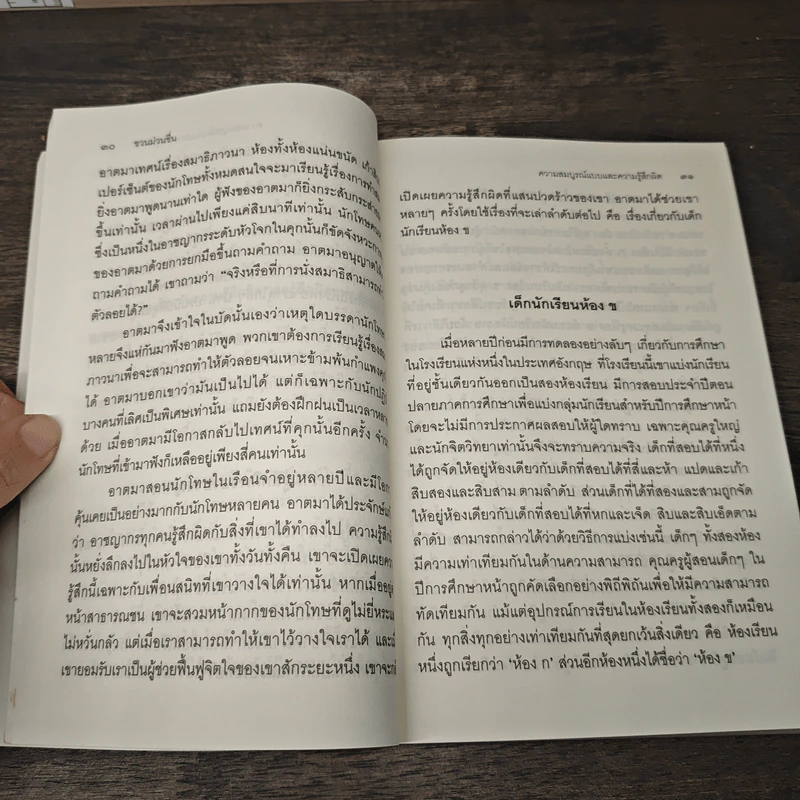 ๓๐ ชวนม่วนชื่น
อาตมาเทศน์เรื่องสมาธิภาวนา ห้องทั้งห้องแน่นขนัด
เปอร์เซ็นต์ของนักโทษทั้งหมดสนใจจะมาเรียนรู้เรื่องการทำ
ยิ่งอาตมาพูดนานเท่าใด ผู้ฟังของอาตมาก็ยิ่งกระสับกระส่าย
ขึ้นเท่านั้น เวลาผ่านไปเพียงแค่สิบนาทีเท่านั้น นักโทษคน
ซึ่งเป็นหนึ่งในอาชญากรระดับหัวโจกในคุกนั้นก็ขัดจังหวะการ
ของอาตมาด้วยการยกมือขึ้นถามคำถาม อาตมาอนุญาตให้
ถามคำถามได้ เขาถามว่า “จริงหรือที่การนั่งสมาธิสามารถทำ
ตัวลอยได้?”
อาตมาจึงเข้าใจในบัดนั้นเองว่าเหตุใดบรรดานักโทษ
หลายจึงแห่กันมาฟังอาตมาพูด พวกเขาต้องการเรียนรู้เรื่อง
ภาวนาเพื่อจะสามารถทำให้ตัวลอยจนเหาะข้ามพ้นกำแพงคุก
ได้ อาตมาบอกเขาว่ามันเป็นไปได้ แต่ก็เฉพาะกับนักปฏิ
บางคนที่เลิศเป็นพิเศษเท่านั้น แถมยังต้องฝึกฝนเป็นเวลาหลาย
ด้วย เมื่ออาตมามีโอกาสกลับไปเทศน์ที่คุกนั้นอีกครั้ง จำนวน
นักโทษที่เข้ามาฟังก็เหลืออยู่เพียงสี่คนเท่านั้น
อาตมาสอนนักโทษในเรือนจำอยู่หลายปีและมีโอกาส
คุ้นเคยเป็นอย่างมากกับนักโทษหลายคน อาตมาได้ประจักษ์แก่
ว่า อาชญากรทุกคนรู้สึกผิดกับสิ่งที่เขาได้ทำลงไป ความรู้สึก
นั้นหยั่งลึกลงไปในหัวใจของเขาทั้งวันทั้งคืน เขาจะเปิดเผยความ
รู้สึกนี้เฉพาะกับเพื่อนสนิทที่เขาวางใจได้เท่านั้น หากเมื่ออยู่
หน้าสาธารณชน เขาจะสวมหน้ากากของนักโทษที่ดูไม่ยี่หระและ
ไม่หวั่นกลัว แต่เมื่อเราสามารถทำให้เขาไว้วางใจเราได้ และ
เขายอมรับเราเป็นผู้ช่วยฟื้นฟูจิตใจของเขาสักระยะหนึ่ง เขาจะ
ความสมบูรณ์แบบและความรู้สึกผิด ๓๑
เปิดเผยความรู้สึกผิดที่แสนปวดร้าวของเขา อาตมาได้ช่วยเขา
หลายๆ ครั้งโดยใช้เรื่องที่จะเล่าลำดับต่อไป คือ เรื่องเกี่ยวกับเด็ก
นักเรียนห้อง ข
เด็กนักเรียนห้อง ข
เมื่อหลายปีก่อนมีการทดลองอย่างลับๆ เกี่ยวกับการศึกษา
ในโรงเรียนแห่งหนึ่งในประเทศอังกฤษ ที่โรงเรียนนี้เขาแบ่งนักเรียน
ที่อยู่ชั้นเดียวกันออกเป็นสองห้องเรียน มีการสอบประจำปีตอน
ปลายภาคการศึกษาเพื่อแบ่งกลุ่มนักเรียนสำหรับปีการศึกษาหน้า
โดยจะไม่มีการประกาศผลสอบให้ผู้ใดทราบ เฉพาะคุณครูใหญ่
และนักจิตวิทยาเท่านั้นจึงจะทราบความจริง เด็กที่สอบได้ที่หนึ่ง
ได้ถูกจัดให้อยู่ห้องเดียวกับเด็กที่สอบได้ที่สี่และห้า แปดและเก้า
สิบสองและสิบสาม ตามลำดับ ส่วนเด็กที่ได้ที่สองและสามถูกจัด
ให้อยู่ห้องเดียวกับเด็กที่สอบได้ที่หกและเจ็ด สิบและสิบเอ็ดตาม
ลำดับ สามารถกล่าวได้ว่าด้วยวิธีการแบ่งเช่นนี้ เด็กๆ ทั้งสองห้อง
มีความเท่าเทียมกันในด้านความสามารถ คุณครูผู้สอนเด็กๆ ใน
ปีการศึกษาหน้าก็ถูกคัดเลือกอย่างพิถีพิถันเพื่อให้มีความสามารถ
ทัดเทียมกัน แม้แต่อุปกรณ์การเรียนในห้องเรียนทั้งสองก็เหมือน
กัน ทุกสิ่งทุกอย่างเท่าเทียมกันที่สุดยกเว้นสิ่งเดียว คือ ห้องเรียน
หนึ่งถูกเรียกว่า ‘ห้อง ก’ ส่วนอีกห้องหนึ่งได้ชื่อว่า ‘ห้อง ข’